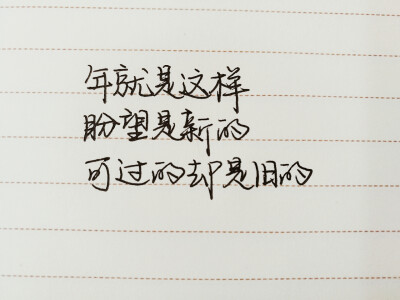 年就是这样
盼望是新的
可过的却是旧的